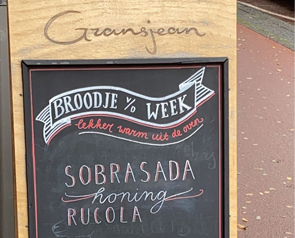 Gransjean
BROODJE v/d WEEK
lekker warm uit de oven
SOBRASADA
honing
RUCOLA